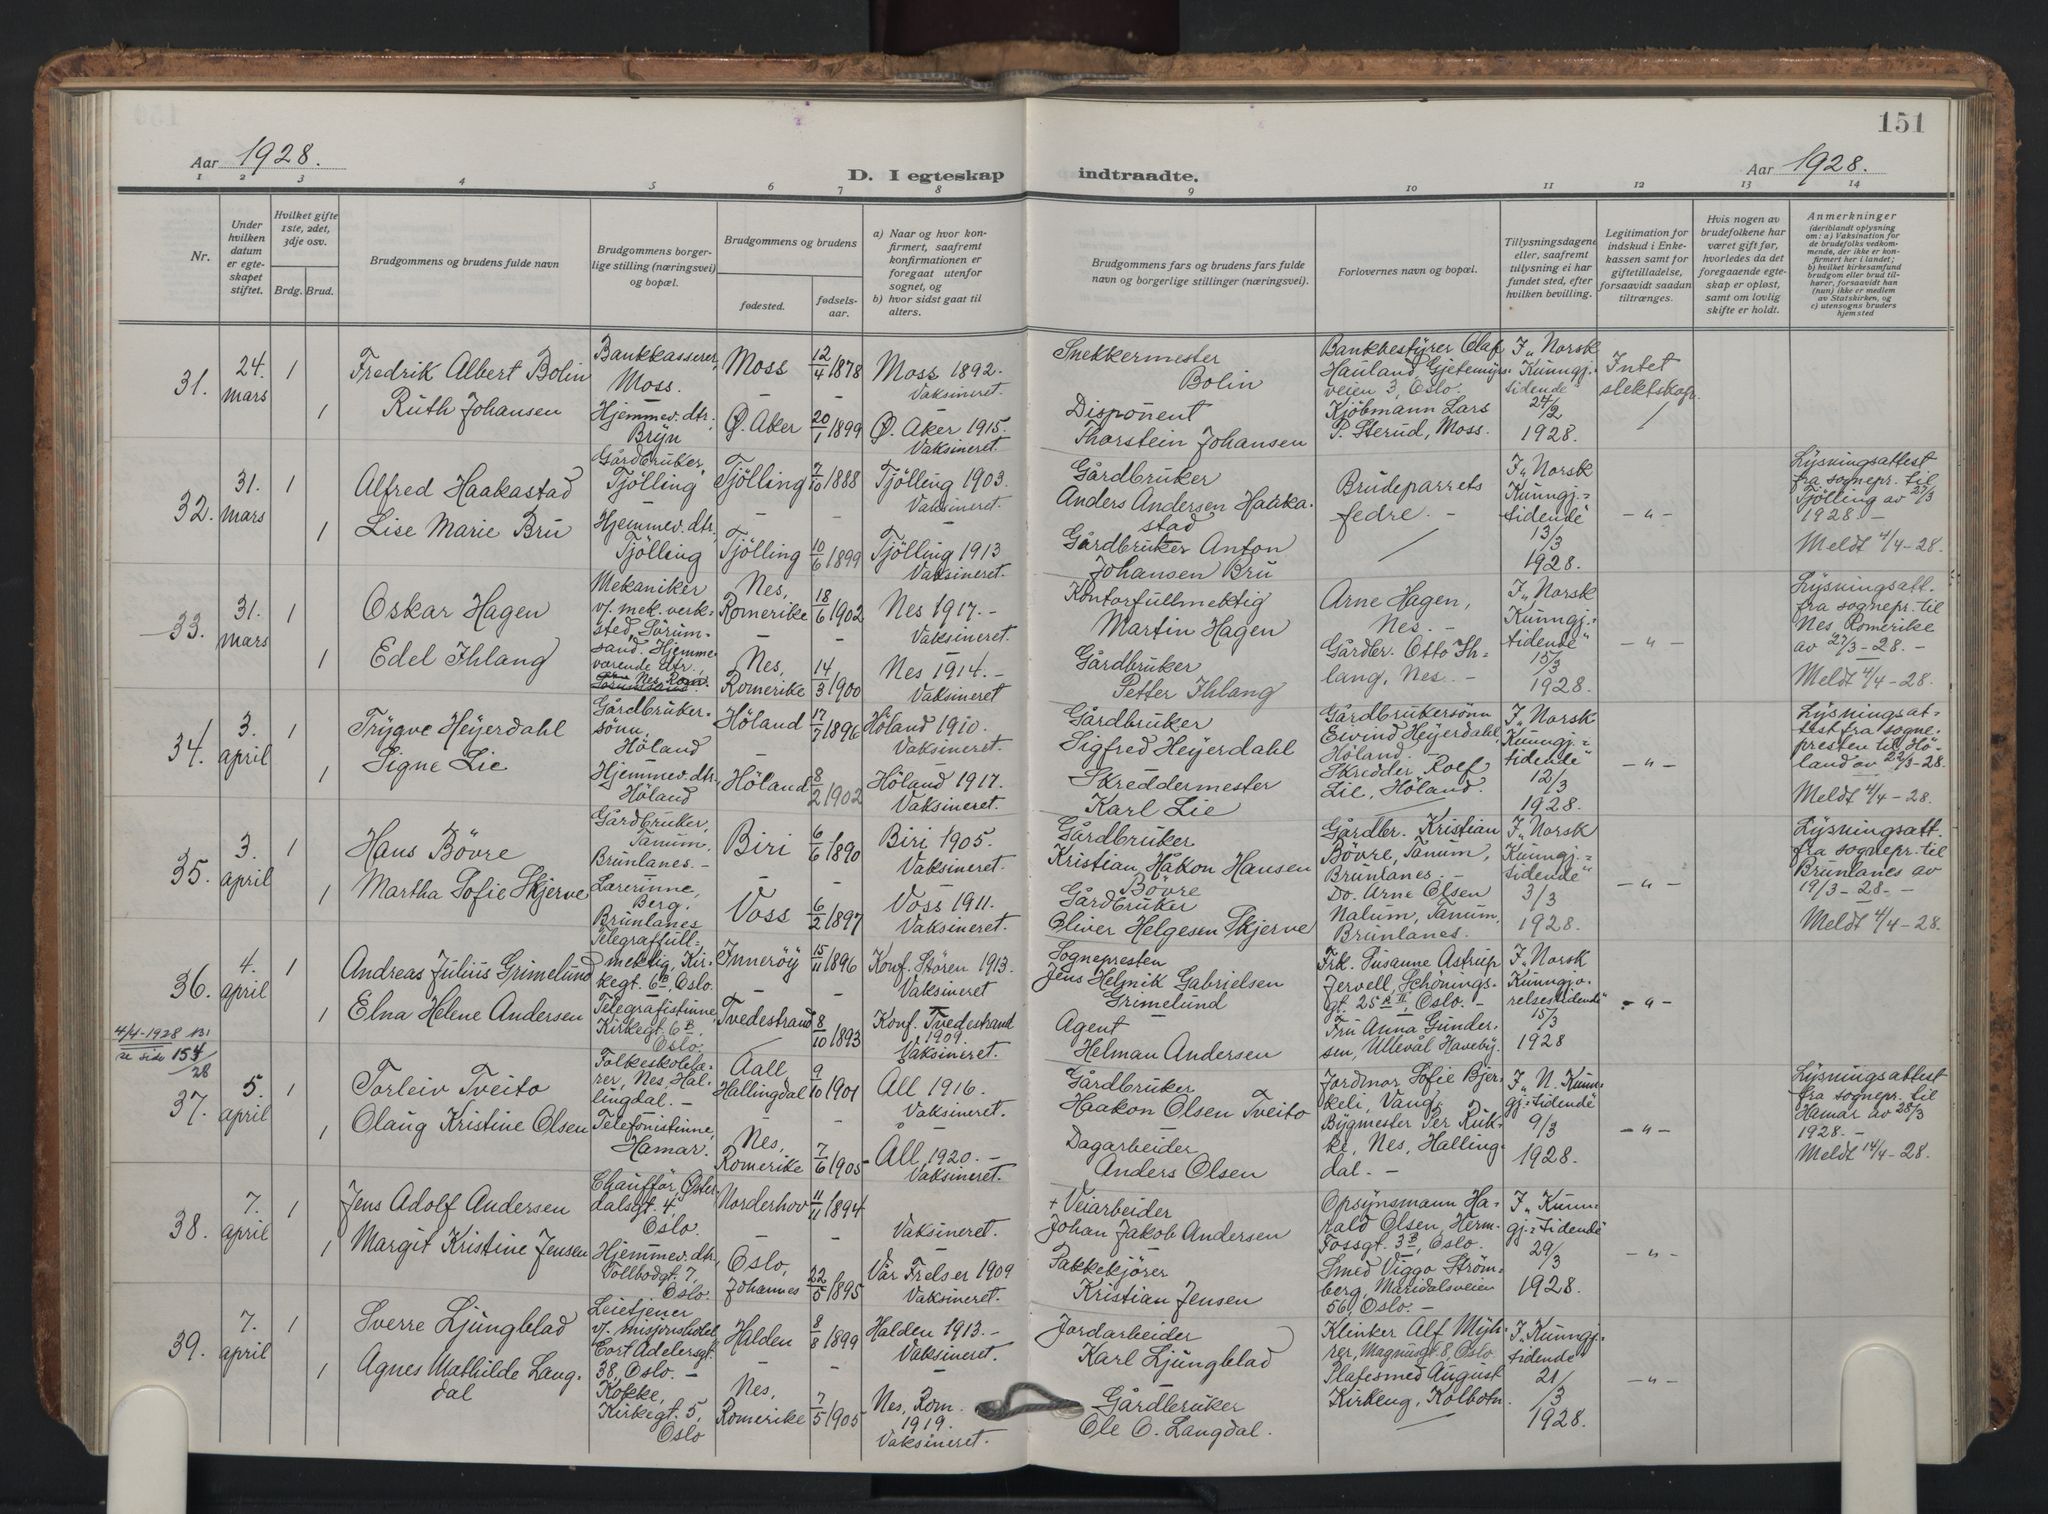 151
Aar 1928.
D. I egteskap indtraadte.
Aar 1928.
1 2 3 4 5 6 7 8 9 10 11 12 13 14
Nr.
Under hvilken datum er egteskapet stiftet.
Hvilket gifte 1ste, 2det, 3dje osv.
Brdg. Brud.
Brudgommens og brudens fulde navn
Brudgommens borgerlige stilling (næringsvei) og bopæl.
Brudgommens og brudens
fødested. fødselsaar.
a) Naar og hvor konfirmert, saafremt konfirmationen er foregaat utenfor sognet, og
b) hvor sidst gaat til alters.
Brudgommens fars og brudens fars fulde navn og borgerlige stillinger (næringsvei).
Forlovernes navn og bopæl.
Tillysningsdagene eller, saafremt tillysning ei har fundet sted, efter hvilken bevilling.
Legitimation for indskud i Enkekassen samt for giftetilladelse, forsaavidt saadan tiltrænges.
Hvis nogen av brudefolkene har været gift før, hvorledes da det foregaaende egteskap er opløst, samt om lovlig skifte er holdt.
Anmerkninger
(deriblandt oplysning om: a) Vaksination for de brudefolks vedkommende, der ikke er konfirmert her i landet; b) hvilket kirkesamfund brudgom eller brud tilhører, forsaavidt han (hun) ikke er medlem av Statskirken, og c) utensogns bruders hjemsted
31. 24. mars 1 Fredrik Albert Bolin Bankkasserer, Moss. Moss 12/4 1878 Moss 1892. Vaksineret. Snekkermester Bolin
1 Ruth Johansen Hjemmev. dtr., Bryn Ø. Aker 20/1 1899 Ø. Aker 1915. Vaksineret. Disponent Thorstein Johansen
Bankbestyrer Olaf Hauland Gjetemyrsveien 3, Oslo. Kjöbmann Lars P. Sterud, Moss.
I „Norsk Kunngj.-tidende" 24/2 1928. Intet slektskap.
32. 31. mars 1 Alfred Haakastad Gårdbruker, Tjölling Tjölling 7/10 1888 Tjölling 1903. Vaksineret. Gårdbruker Anders Andersen Haakastad
1 Lise Marie Bru Hjemmev. dtr., Tjölling Tjölling 10/6 1899 Tjölling 1913 Vaksineret. Gårdbruker Anton Johansen Bru
Brudeparrets fedre. - I „Norsk Kunngj.-tidende" 13/3 1928. -"-
Lysningsattest fra sognepr. til Tjölling av 27/3 1928. - Meldt 4/4-28.
33. 31. mars 1 Oskar Hagen Mekaniker v/ mek. verksted, Sörumsand. Nes, Romerike 18/6 1902 Nes 1917. - Vaksineret. Kontorfullmektig Martin Hagen
1 Edel Ihlang Hjemmeværende dtr., Nes, Rom. Nes, Romerike 14/3 1900 Nes 1914. - Vaksineret. Gårdbruker Petter Ihlang
Arne Hagen, Nes. - Gårdbr. Otto Ihlang, Nes. - I „Norsk Kunngj.-tidende" 15/3 1928. -"-
Lysningsatt. fra sognepr. til Nes Romerike av 27/3-28. - Meldt 4/4-28.
34. 3. april 1 Trygve Heyerdahl Gårdbrukersönn, Höland Höland 17/7 1896 Höland 1910. Vaksineret. Gårdbruker Sigfred Heyerdahl
1 Signe Lie Hjemmev. dtr. Höland Höland 8/2 1902 Höland 1917. Vaksineret. Skreddermester Karl Lie
Gårdbrukersönn Eivind Heyerdahl, Höland. - Skredder Rolf Lie, Höland. I „Norsk Kunngj.-tidende" 12/3 1928. -"-
Lysningsattest fra sognepresten til Höland av 22/3-28. Meldt 4/4-28.
35. 3. april 1 Hans Bövre Gårdbruker, Tanum, Brunlanes. - Biri 6/6 1890 Biri 1905. Vaksineret. Gårdbruker Kristian Håkon Hansen Bövre
1 Martha Sofie Skjerve Lærerinne, Berg, Brunlanes Voss 6/2 1897 Voss 1911. Vaksineret. Gårdbruker Oliver Helgesen Skjerve
Gårdbr. Kristian Bövre, Tanum, Brunlanes. - Do. Arne Olsen Nalum, Tanum, Brunlanes. I „Norsk Kunngj.-tidende" 3/3 1928. -"-
Lysningsatt. fra sognepr. til Brunlanes av 19/3-28. - Meldt 4/4-28.
36. 4. april 1 Andreas Julius Grimelund Telegraffullmektig, Kirkegt. 6B, Oslo. Inneröy 15/11 1896 Konf. Stören 1913. Vaksineret Sognepresten Jens Helmik Gabrielsen Grimelund
1 Elna Helene Andersen Telegrafistinne, Kirkegt. 6B, Oslo. Tvedestrand 8/10 1893 Konf. Tvedestrand 1909. Vaksineret. Agent Helman Andersen
Frk. Susanne Astrup Jervell, Schöningsgt. 25 II, Oslo. - Fru Anna Gundersen, Ullevål Haveby. I „Norsk Kunngjörelsestidende" 15/3 1928 -"-
4/4-1928 131 se side 154/28
37. 5. april 1 Torleiv Tveito Folkeskolelærer, Nes, Hallingdal. - Aall Hallingdal 9/10 1901 Ål 1916. Vaksineret. Gårdbruker Haakon Olsen Tveito
1 Olaug Kristine Olsen Telefonistinne, Hamar. Nes, Romerike 7/6 1905 Ål 1920. - Vaksineret. Dagarbeider Anders Olsen
Jordmor Sofie Bjerkeli, Vang. Bygmester Per Rukke, Nes, Hallingdal. - I „N. Kunngj.-tidende" 9/3 1928. -"-
Lysningsattest fra sognepr. til Hamar av 28/3 1928. - Meldt 14/4-28.
38. 7. april 1 Jens Adolf Andersen Chaufför, Österdalsgt. 4 Oslo. Norderhov 11/11 1894 Vaksineret. + Veiarbeider Johan Jakob Andersen
1 Margit Kristine Jensen Hjemmev. dtr., Tollbodgt. 7, Oslo. Oslo, Johannes 22/5 1895 Vår Frelser 1909 Vaksineret. Pakkekjörer Kristian Jensen
Opsynsmann Harald Olsen, Herm. Fossgt. 3B, Oslo. Smed Viggo Strömberg, Maridalsveien 56, Oslo. - I „Kunngj.-tidende" 29/3 1928. -"-
39. 7. april 1 Sverre Ljungblad Leietjener v/ misjonshotel Cort Adelersgt. 38, Oslo. - Halden 8/8 1899 Halden 1913. - Vaksineret. Jordarbeider Karl Ljungblad
1 Agnes Mathilde Langdal Kokke, Kirkegt. 5, Oslo Nes, Romerike 7/5 1905 Nes, Rom. 1919. Vaksineret. Gårdbruker Ole O. Langdal.
Klinker Alf Myhrer, Magnusgt. 8, Oslo Platesmed August Kirkeng, Kolbotn. I „Kunngj.-tidende" 21/3 1928. -"-